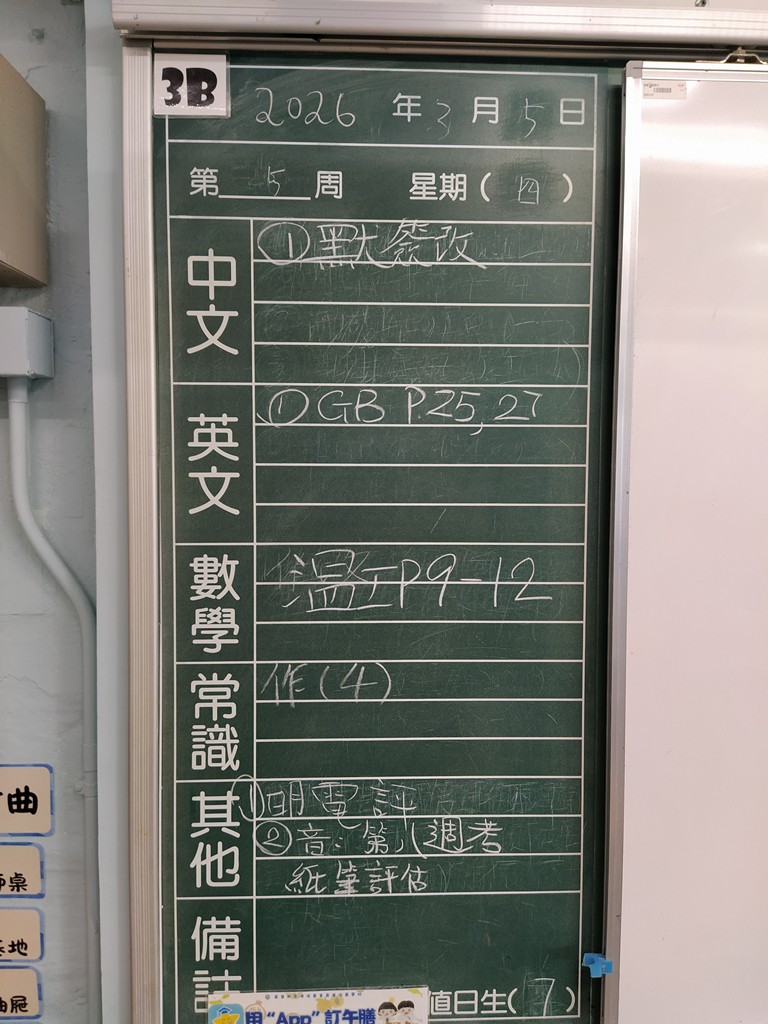 3B
2026 年 3 月 5 日
第 5 周 星期(四)
中文
①默簽改
英文
①GB P.25,27
數學
溫工P9-12
常識
作(4)
其他
①明電評
②音:第八週考
紙筆評估
備註
值日生(7)
用“App”訂午膳
曲
桌
地
油屍